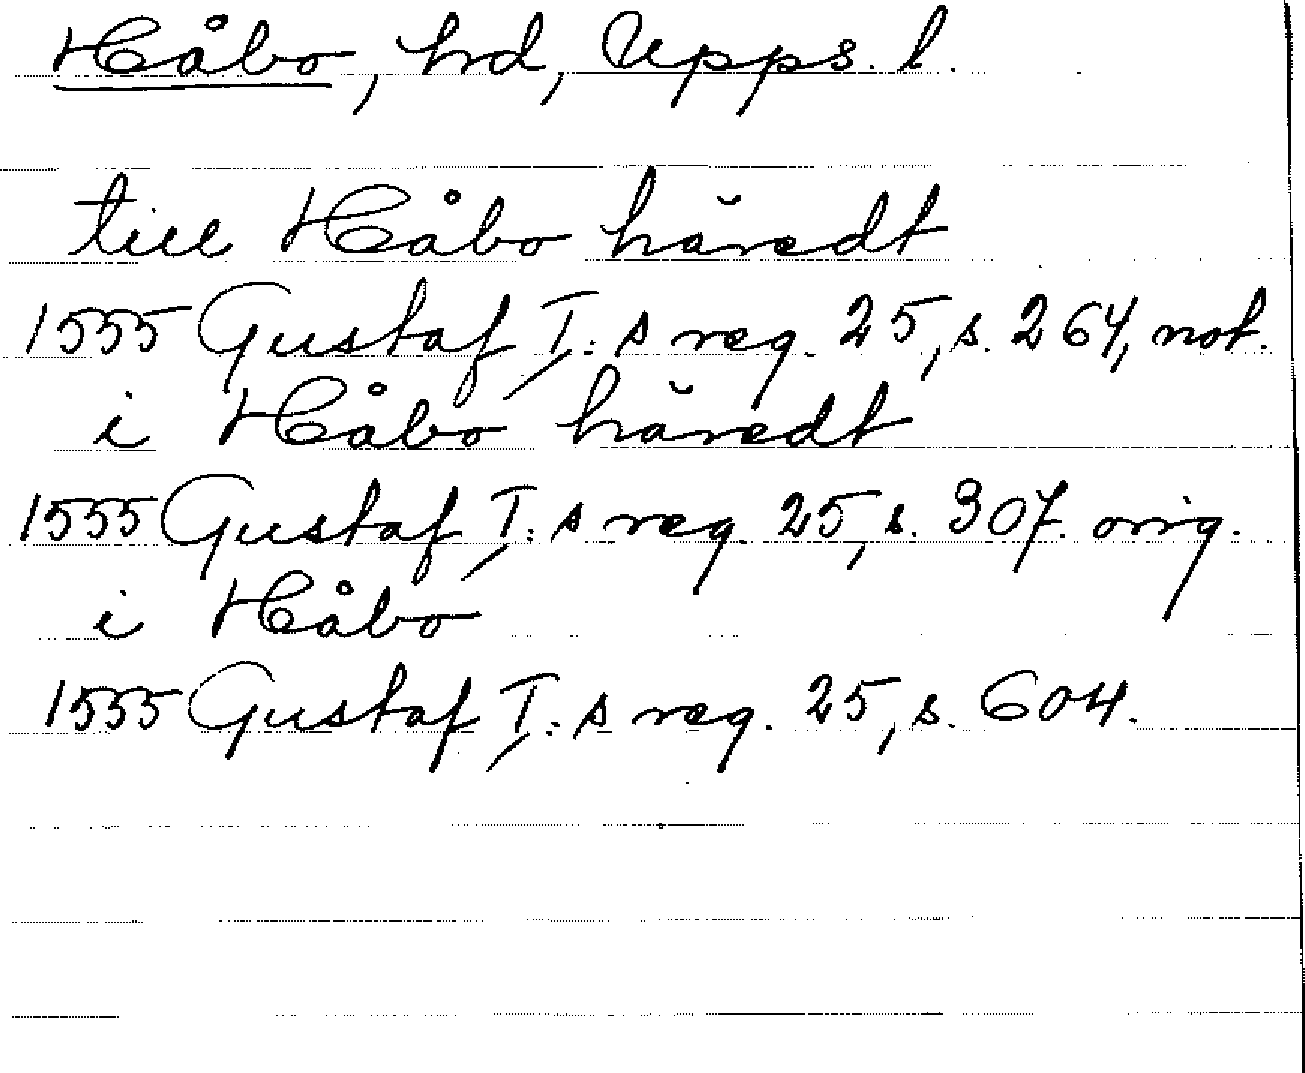 Håbo, hrd, Upps. l.
till Håbo häredt
1555 Gustaf I:s reg. 25, s. 264, not.
i Håbo häredt
1555 Gustaf I:s reg. 25, s. 307. orig.
i Håbo
1555 Gustaf I:s reg. 25, s. 604.